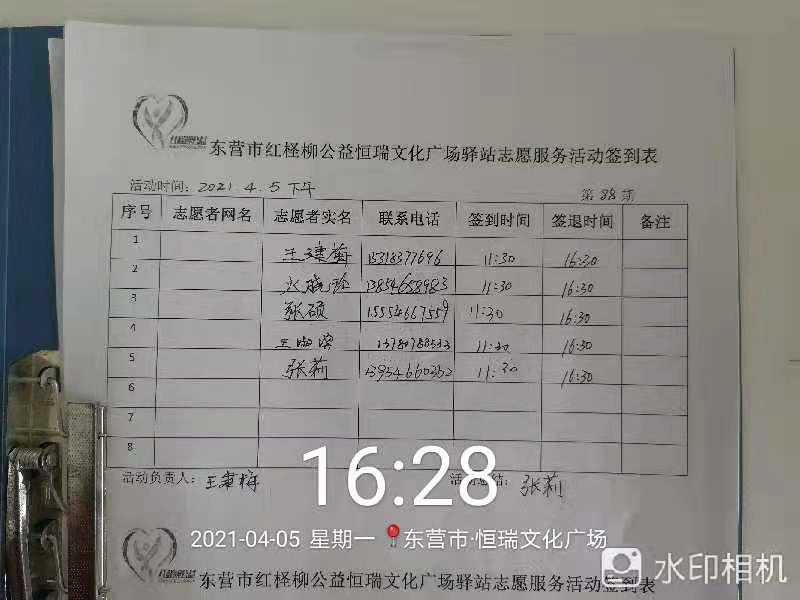 东营市红柽柳公益恒瑞文化广场驿站志愿服务活动签到表
活动时间：2021.4.5下午 第88期
序号 志愿者网名 志愿者实名 联系电话 签到时间 签退时间 备注
1 15318377696 11:30 16:30
2 13854658983 11:30 16:30
3 张硕 15554667559 11:30 16:30
4 11:30 16:30
5 张莉 13954660352 11:30 16:30
6
7
8
活动负责人： 张莉
16:28
2021-04-05 星期一 东营市·恒瑞文化广场
水印相机
东营市红柽柳公益恒瑞文化广场驿站志愿服务活动签到表